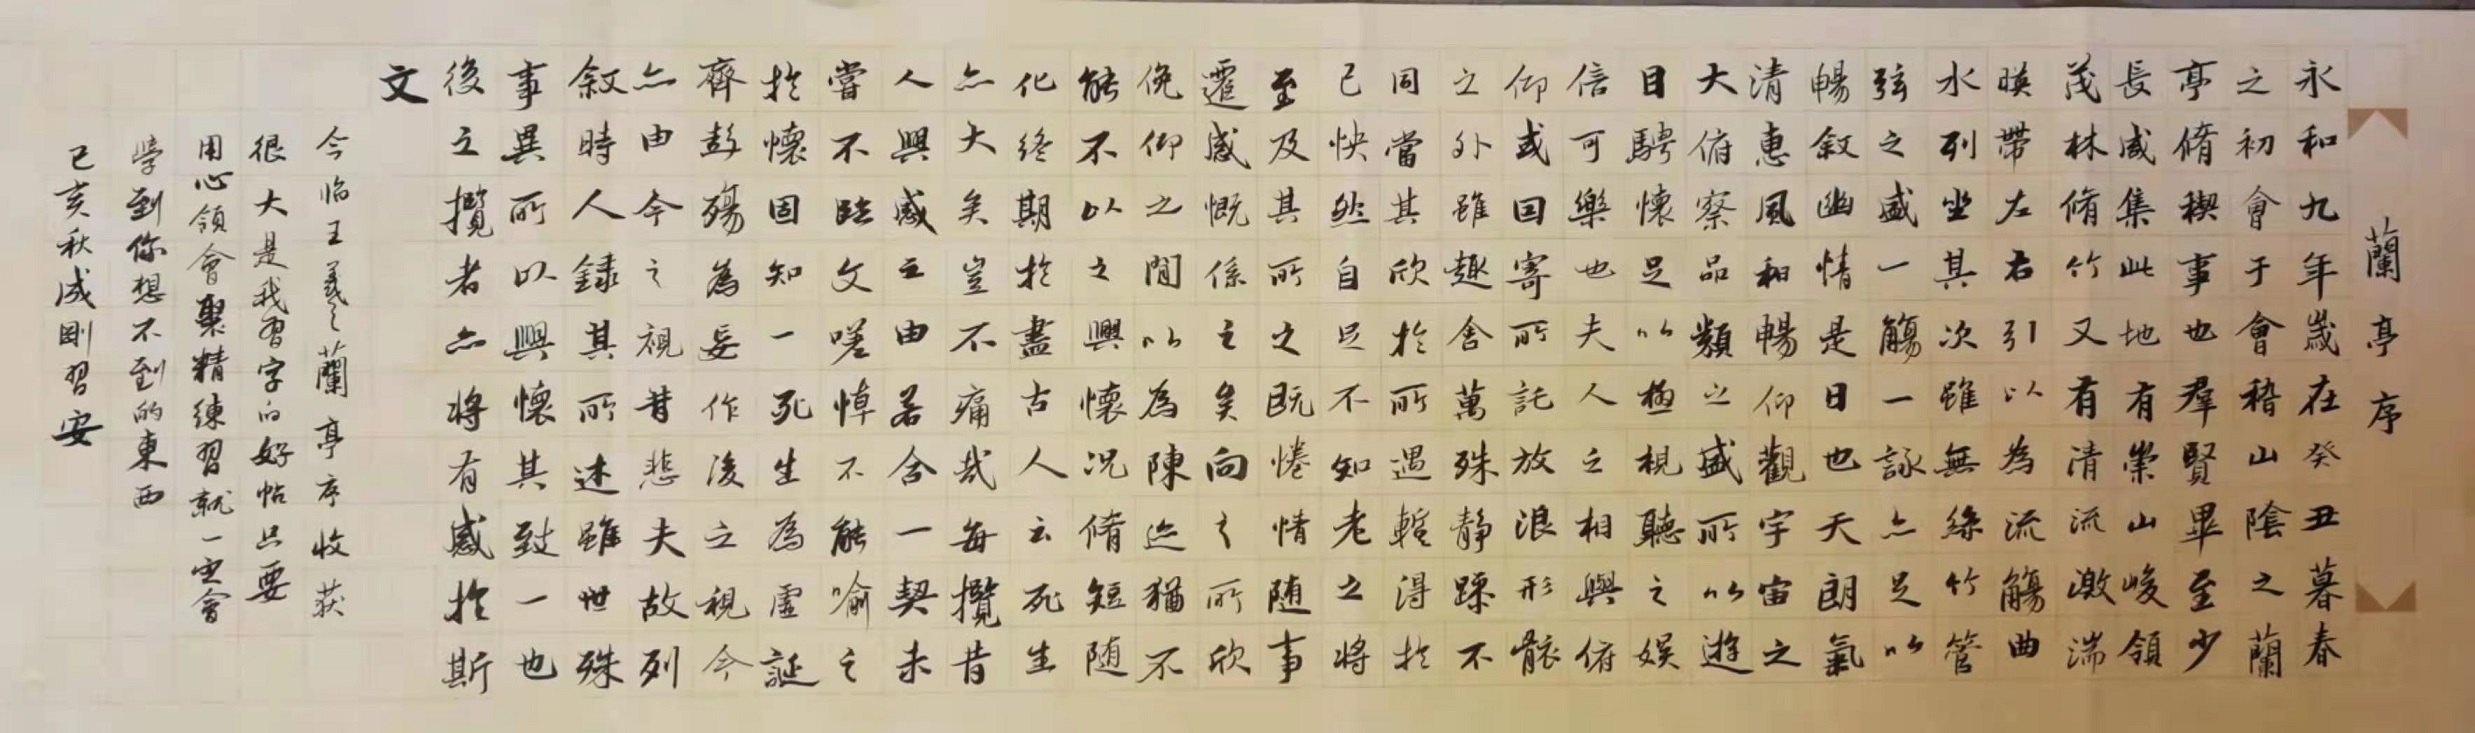 蘭亭序
永和九年歲在癸丑暮春
之初會于會稽山陰之蘭
亭脩稧事也羣賢畢至少
長咸集此地有崇山峻領
茂林脩竹又有清流激湍
暎帶左右引以為流觴曲
水列坐其次雖無絲竹管
弦之盛一觴一詠亦足以
暢敘幽情是日也天朗氣
清惠風和暢仰觀宇宙之
大俯察品類之盛所以遊
目騁懷足以極視聽之娛
信可樂也夫人之相與俯
仰或因寄所託放浪形骸
之外雖趣舍萬殊静躁不
同當其欣於所遇蹔得於
己怏然自足不知老之將
至及其所之既惓情随事
遷感慨係之矣向之所欣
俛仰之間以為陳迹猶不
能不以之興懷况脩短随
化終期於盡古人云死生
亦大矣豈不痛哉每攬昔
人興感之由若合一契未
嘗不臨文嗟悼不能喻之
於懷固知一死生為虛誕
齊彭殤為妄作後之視今
亦由今之視昔悲夫故列
敘時人錄其所述雖世殊
事異所以興懷其致一也
後之攬者亦將有感於斯
文
今临王羲之蘭亭序收获
很大是我習字的好帖只要
用心領會聚精練習就一定會
學到你想不到的東西
己亥秋成剛習安